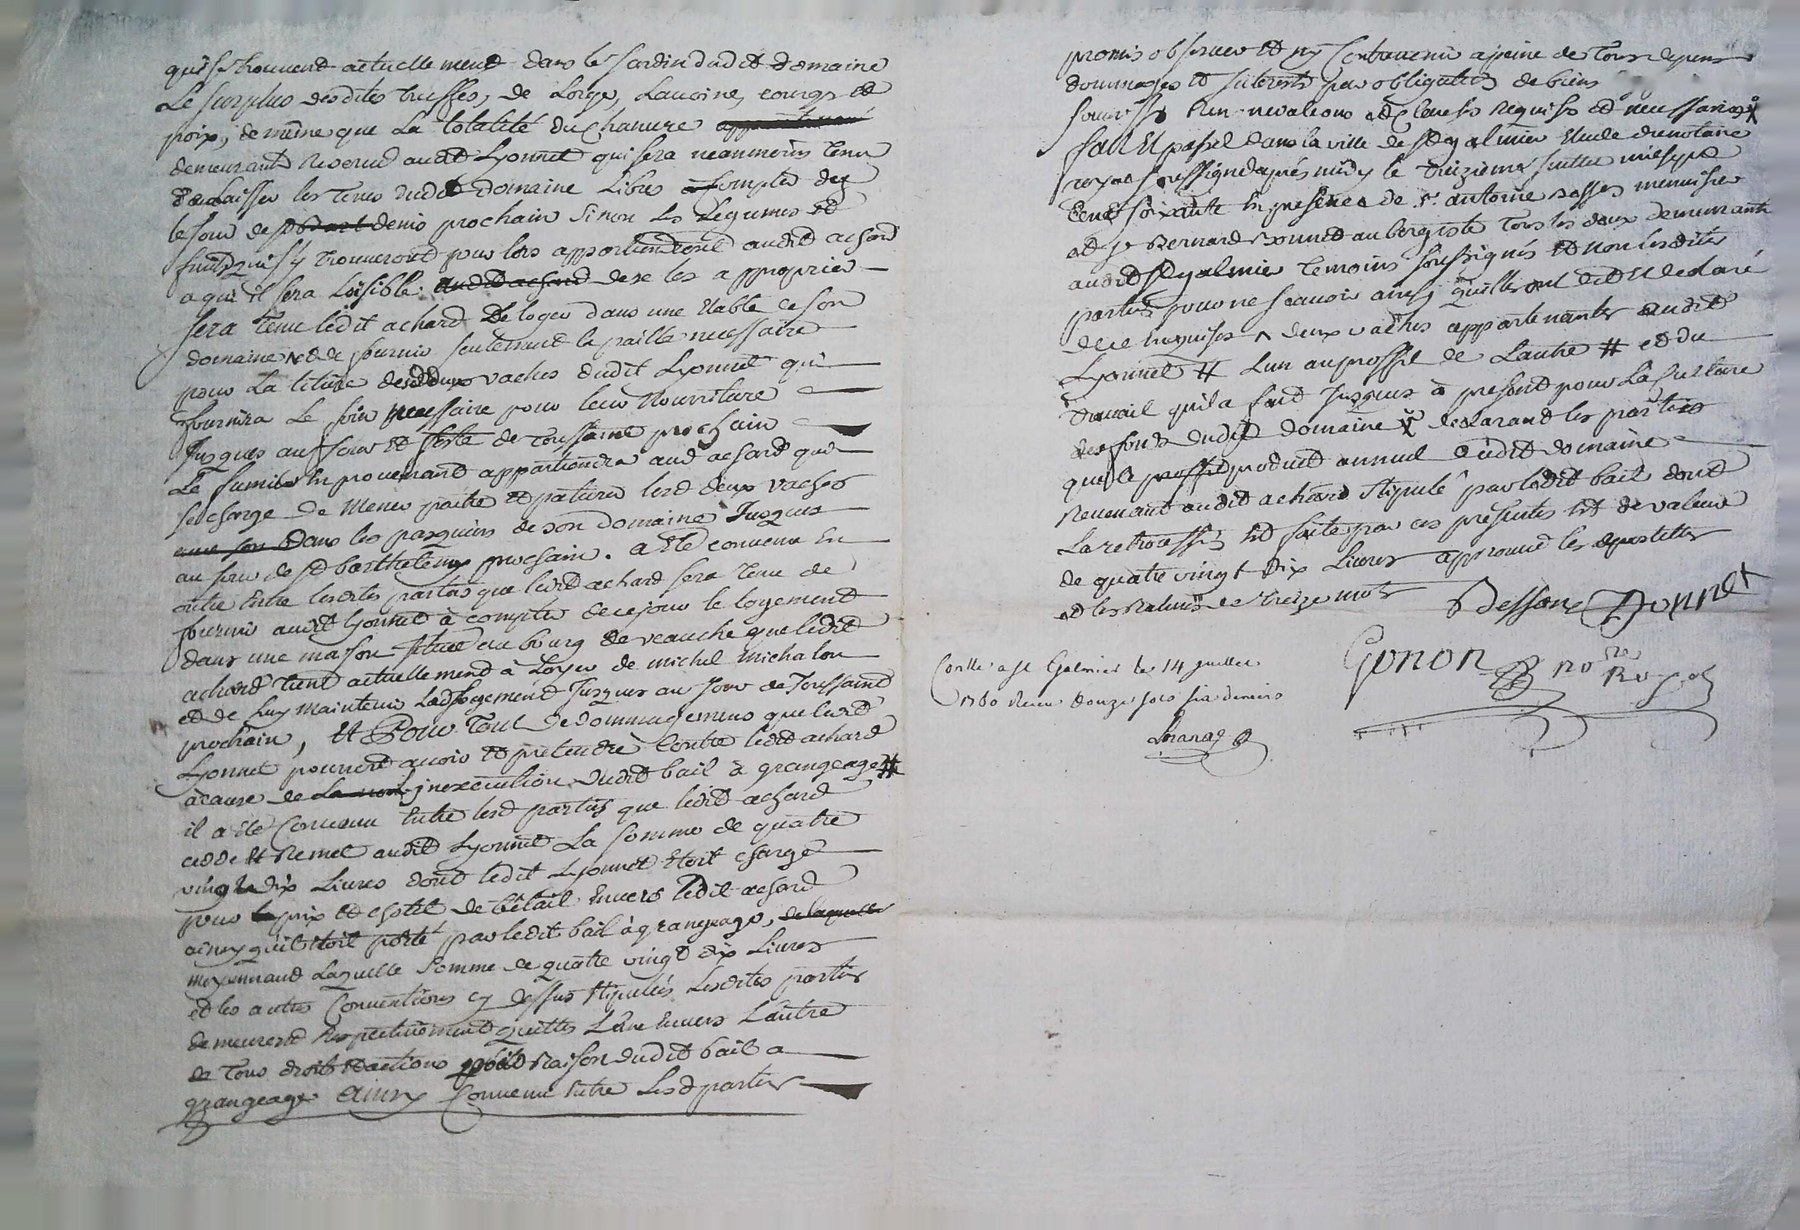 qui se trouvent actuellement dans le Jardin dudit domaine
Le surplus desdites truffes, de Lorge, Lavoine, courge et
poix, de même que La totalité du chanvre
demeurant reservé audit Lyonnet qui sera neanmoins tenu
de laisser les terres dudit domaine Libres a compter de
le jour de st denis prochain sinon les Legumes et
fruits qui s'y trouveront pour lors appartiendront audit achard
a qui il sera Loisible de se les approprier
sera tenu ledit achard De loger dans une Etable de son
domaine et de fournir seulement la paille necessaire
pour La litiere desd deux vaches dudit Lyonnet qui
fournira Le foin necessaire pour leur nourriture
Jusques au Jour et feste de Toussaint prochain
Le fumier En provenant appartiendra aud achard qui
se charge de mener paitre et paturer lesd deux vaches
dans les pasquiers de son domaine Jusques
au jour de st barthelemy prochain. a Eté convenu En
outre Entre lesdites parties que ledit achard sera tenu de
fournir audit Lyonnet à compter de ce jour le logement
dans une maison située au bourg de veauche que ledit
achard tient actuellement à Loyer de michel michalon
et de luy maintenir Led logement Jusques au Jour de Toussaint
prochain, Et Pour Tout dedommagement que ledit
Lyonnet pourroit avoir et pretendre Contre ledit achard
à cause de inexecution dudit bail à grangeage #
il a Eté Convenu Entre lesd parties que ledit achard
cedde Et Remet audit Lyonnet La somme de quatre
vingt dix Livres dont ledit Lyonnet Etoit chargé
pour prix et chotel de bétail Envers ledit achard
ainsy quil Etoit porté par ledit bail à grangeage,
moyennant Laquelle somme de quatre vingt dix Livres
et les autres Conventions cy dessus stipulées Lesdites parties
demeurent Respectivement quittes L'une Envers L'autre
de tous droits et actions pour Raison dudit bail a
grangeage Ainsy Convenu Entre Lesd parties
promis observer et n'y Contrevenir a peine de Tous depens
dommages et Interets par obligation de biens
soumissions Renonciations et clauses requises et necessaires
fait Et passé dans la ville de st galmier Etude du notaire
royal soussigné après midy le treizieme juillet mil sept
Cent soixante En presence de sr antoine menuisier
et sr Bernard Bonnet aubergiste tous les deux demeurants
audit st galmier temoins soussignés et non lesdites
parties pour ne scavoir ainsi qu'elles ont dit Et declaré
de ce Enquises ^ deux vaches appartenantes audit
Lyonnet # L'un au proffit de L'autre # et du
travail quil a fait Jusques à present pour La Culture
des fonds dudit domaine declarant les parties
que le produit annuel dudit domaine
Revenant audit achard stipulé par ledit bail dont
La retrocession Est faite par ces presentes Est de valeur
de quatre vingt dix Livres approuvé les apostilles
et les Ratures de treize mots
Bonnet
Conllé a st Galmier le 14 juillet
1760 Reçu douze sols six deniers
Gonon
no.re Royal